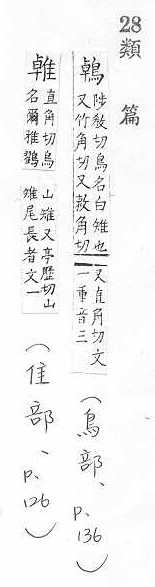 28類篇
鵫
陟敎切鳥名白雉也
又竹角切又敕角切
又直角切文
一重音三
（鳥部、p.136）
直角切鳥
名爾雅鸐
山雉又亭歷切山
雉尾長者文一
（隹部、p.126）